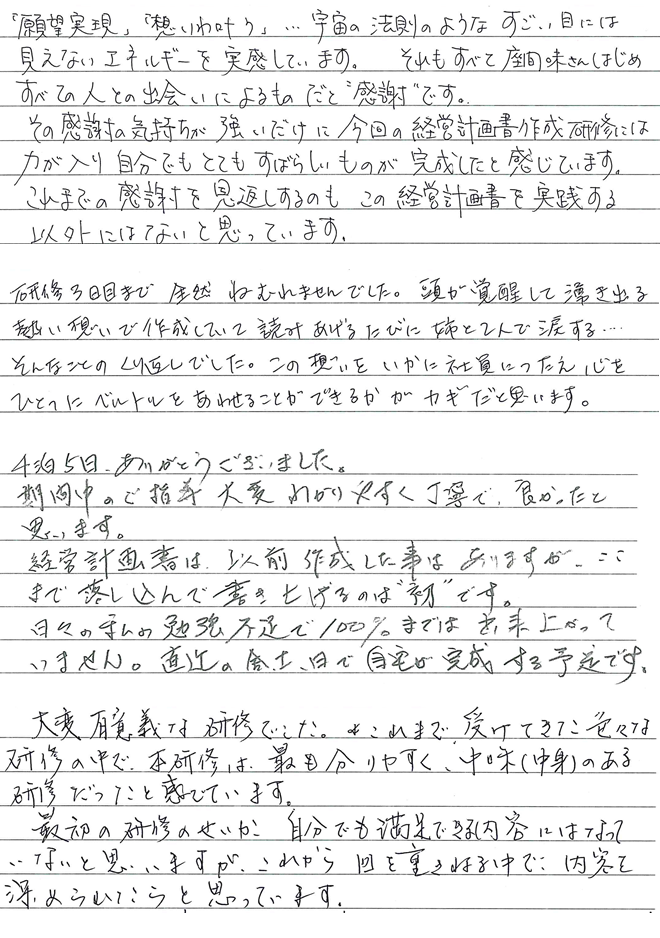 「願望実現」「想いわ叶う」… 宇宙の法則のようなすごい目には
見えないエネルギーを実感しています。 それもすべて座間味さんはじめ
すべての人との出会いによるものだと"感謝"です。
その感謝の気持ちが強いだけに今回の経営計画書作成研修には
力が入り自分でもとてもすばらしいものが完成したと感じています。
これまでの感謝を恩返しするのもこの経営計画書を実践する
以外にはないと思っています。
研修3日目まで全然ねむれませんでした。頭が覚醒して湧き出る
熱い想いで作成していて読みあげるたびに姉と2人で涙する…
そんなことのくり返しでした。この想いをいかに社員につたえ心を
ひとつにベルトルをあわせることができるかがカギだと思います。
4泊5日、ありがとうございました。
期間中のご指導 大変わかりやすく丁寧で、良かったと
思います。
経営計画書は、以前作成した事はありますが、ここ
まで落し込んで書き上げるのは"初"です。
日々の勉強不足で100%までは出来上がって
いません。直近の土、日で自宅で完成する予定です。
大変有意義な研修でした。これまで受けてきた色々な
研修の中で、本研修は、最も分りやすく、中味(中身)のある
研修だったと感じています。
最初の研修のせいか 自分でも満足できる内容にはなって
いないと思いますが、これから回を重さねる中で、内容を
深められたらと思っています。